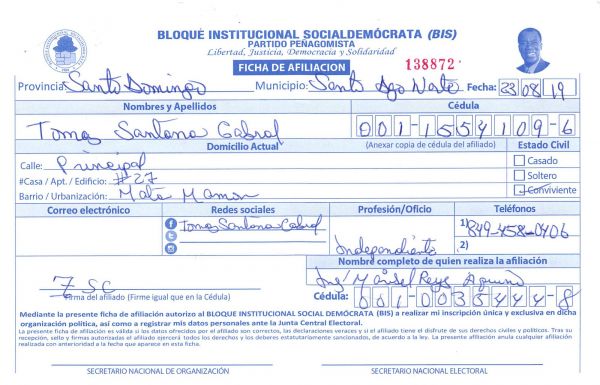 BLOQUE INSTITUCIONAL SOCIALDEMÓCRATA (BIS)
PARTIDO PEÑAGOMISTA
Libertad, Justicia, Democracia y Solidaridad
FICHA DE AFILIACION 138872
Provincia: Santo Domingo Municipio: Santo Dgo Norte Fecha: 23 08 19
Nombres y Apellidos Cédula
Tomas Santana Cabral 001-1554109-6
Domicilio Actual (Anexar copia de cédula del afiliado) Estado Civil
Calle: Principal Casado
#Casa / Apt. / Edificio: #27 Soltero
Barrio / Urbanización: Mata Mamon Conviviente
Correo electrónico Redes sociales Profesión/Oficio Teléfonos
Tomas Santana Cabral 1) 849-458-0406
Independiente 2)
Nombre completo de quien realiza la afiliación
TSC Ing Reyes Aquino
Firma del afiliado (Firme igual que en la Cédula) Cédula: 001-0035444-8
Mediante la presente ficha de afiliación autorizo al BLOQUE INSTITUCIONAL SOCIAL DEMÓCRATA (BIS) a realizar mi inscripción única y exclusiva en dicha
organización política, así como a registrar mis datos personales ante la Junta Central Electoral.
La presente ficha de afiliación es válida si los datos ofrecidos por el afiliado son correctos, las declaraciones veraces y si el afiliado tiene el disfrute de sus derechos civiles y políticos. Tras su
recepción, sello y firmas autorizadas el afiliado ejercerá todos los derechos y los deberes estatutariamente sancionados, de acuerdo a la ley. La presente afiliación anula cualquier afiliación
realizada con anterioridad a la fecha que aparece en esta ficha.
SECRETARIO NACIONAL DE ORGANIZACIÓN SECRETARIO NACIONAL ELECTORAL